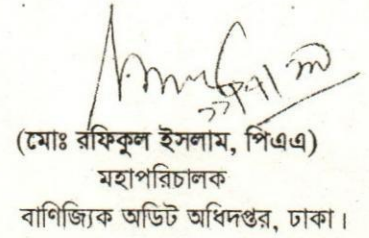 (মোঃ রফিকুল ইসলাম, পিএএ)
মহাপরিচালক
বাণিজ্যিক অডিট অধিদপ্তর, ঢাকা।